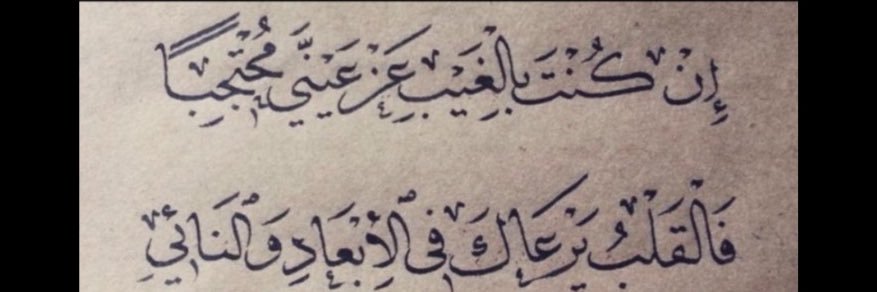 إِنْ كُنْتَ بِالْغَيْبِ عَنْ عَيْنَيَّ مُحْتَجِبًا
فَالْقَلْبُ يَرْعَاكَ فِي الْإِبْعَادِ وَالنَائِي